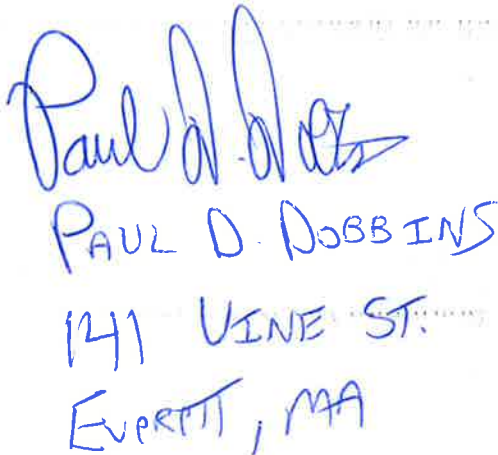 Paul D. Dobbins
PAUL D. DOBBINS
141 VINE ST.
EVERETT, MA